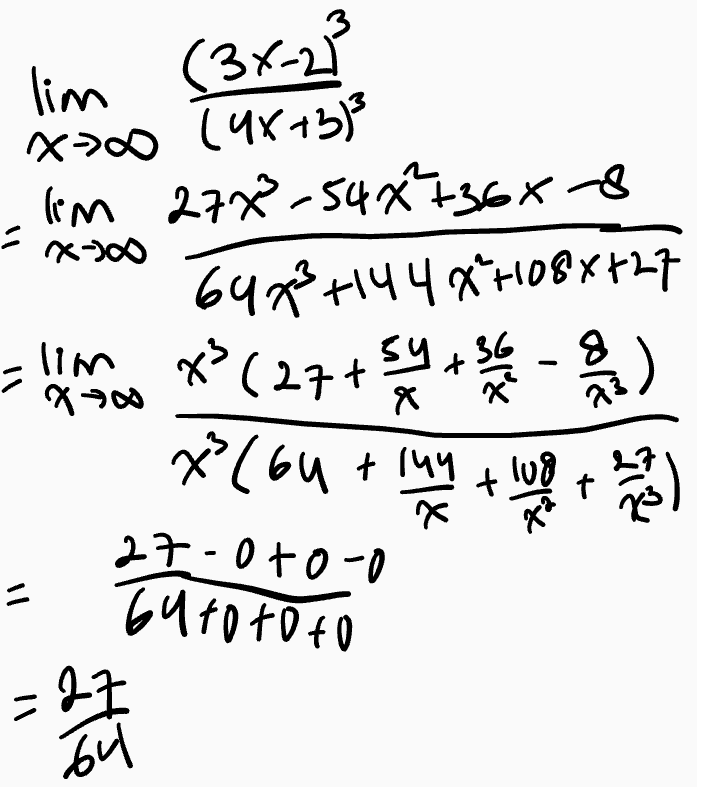 lim x→∞ (3x-2)³ / (4x+3)³
= lim x→∞ 27x³ - 54x² + 36x - 8 / 64x³ + 144x² + 108x + 27
= lim x→∞ x³(27 + 54/x + 36/x² - 8/x³) / x³(64 + 144/x + 108/x² + 27/x³)
= 27 - 0 + 0 - 0 / 64 + 0 + 0 + 0
= 27/64